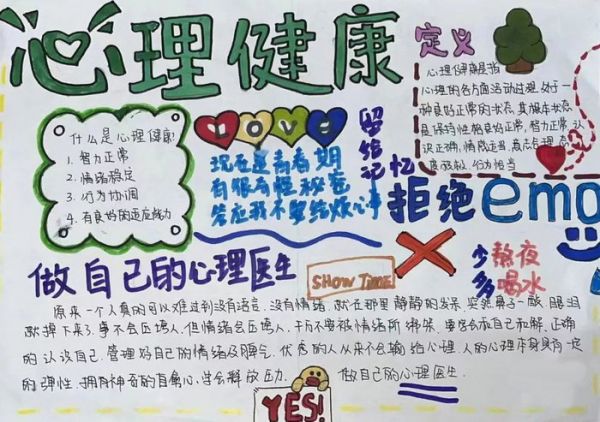 心理健康
定义
心理健康是指
心理的各方面活动过程处于一
种良好正常的状态,其根本状态
是保持性格良好,智力正常,认
识正确,情感适当,意志合理,态
度积极,行为恰当
什么是心理健康
1. 智力正常
2. 情绪稳定
3. 行为协调
4. 有良好的适应能力
LOVE
现在是青春期
有很多个性秘密
答应我不要给烦心事
留给记忆
拒绝emo
少熬夜
多喝水
做自己的心理医生
SHOW TIME
原来一个人真的可以难过到没有语言,没有情绪,就在那里静静的发呆,突然鼻子一酸,眼泪
就掉下来了,事不会压垮人,但情绪会压垮人,千万不要被情绪所绑架,要学会和自己和解,正确
的认识自己,管理好自己的情绪及脾气,优秀的人从来不会输给心理,人的心理本身具有一定
的弹性,拥有神奇的自愈心,学会释放压力,做自己的心理医生.
YES!